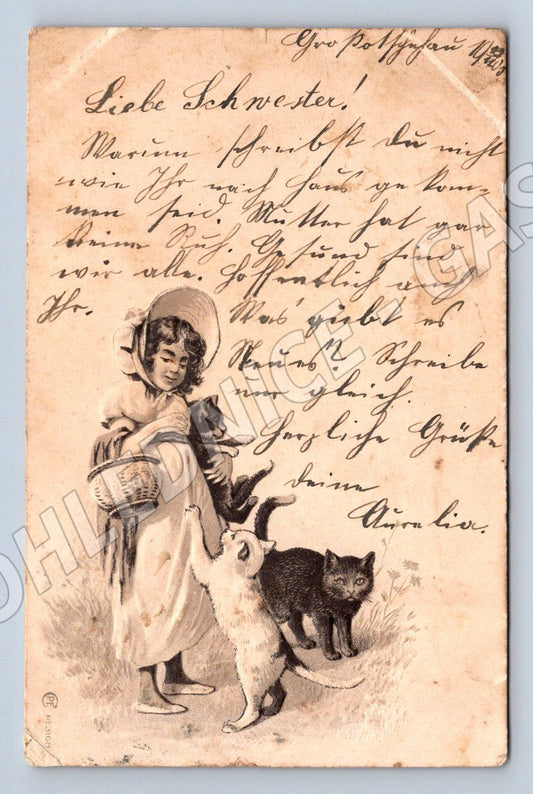 Liebe Schwester!
Warum schreibst du nicht
wie Ihr nach Haus ge kom-
men seid. Mutter hat gar
keine Ruh. Gesund sind
wir alle. Hoffentlich auch
Ihr. Was giebt es
Neues? Schreibe
nur gleich.
Herzliche Grüße
deine
Aurelia.
OHLEDNICE GAS